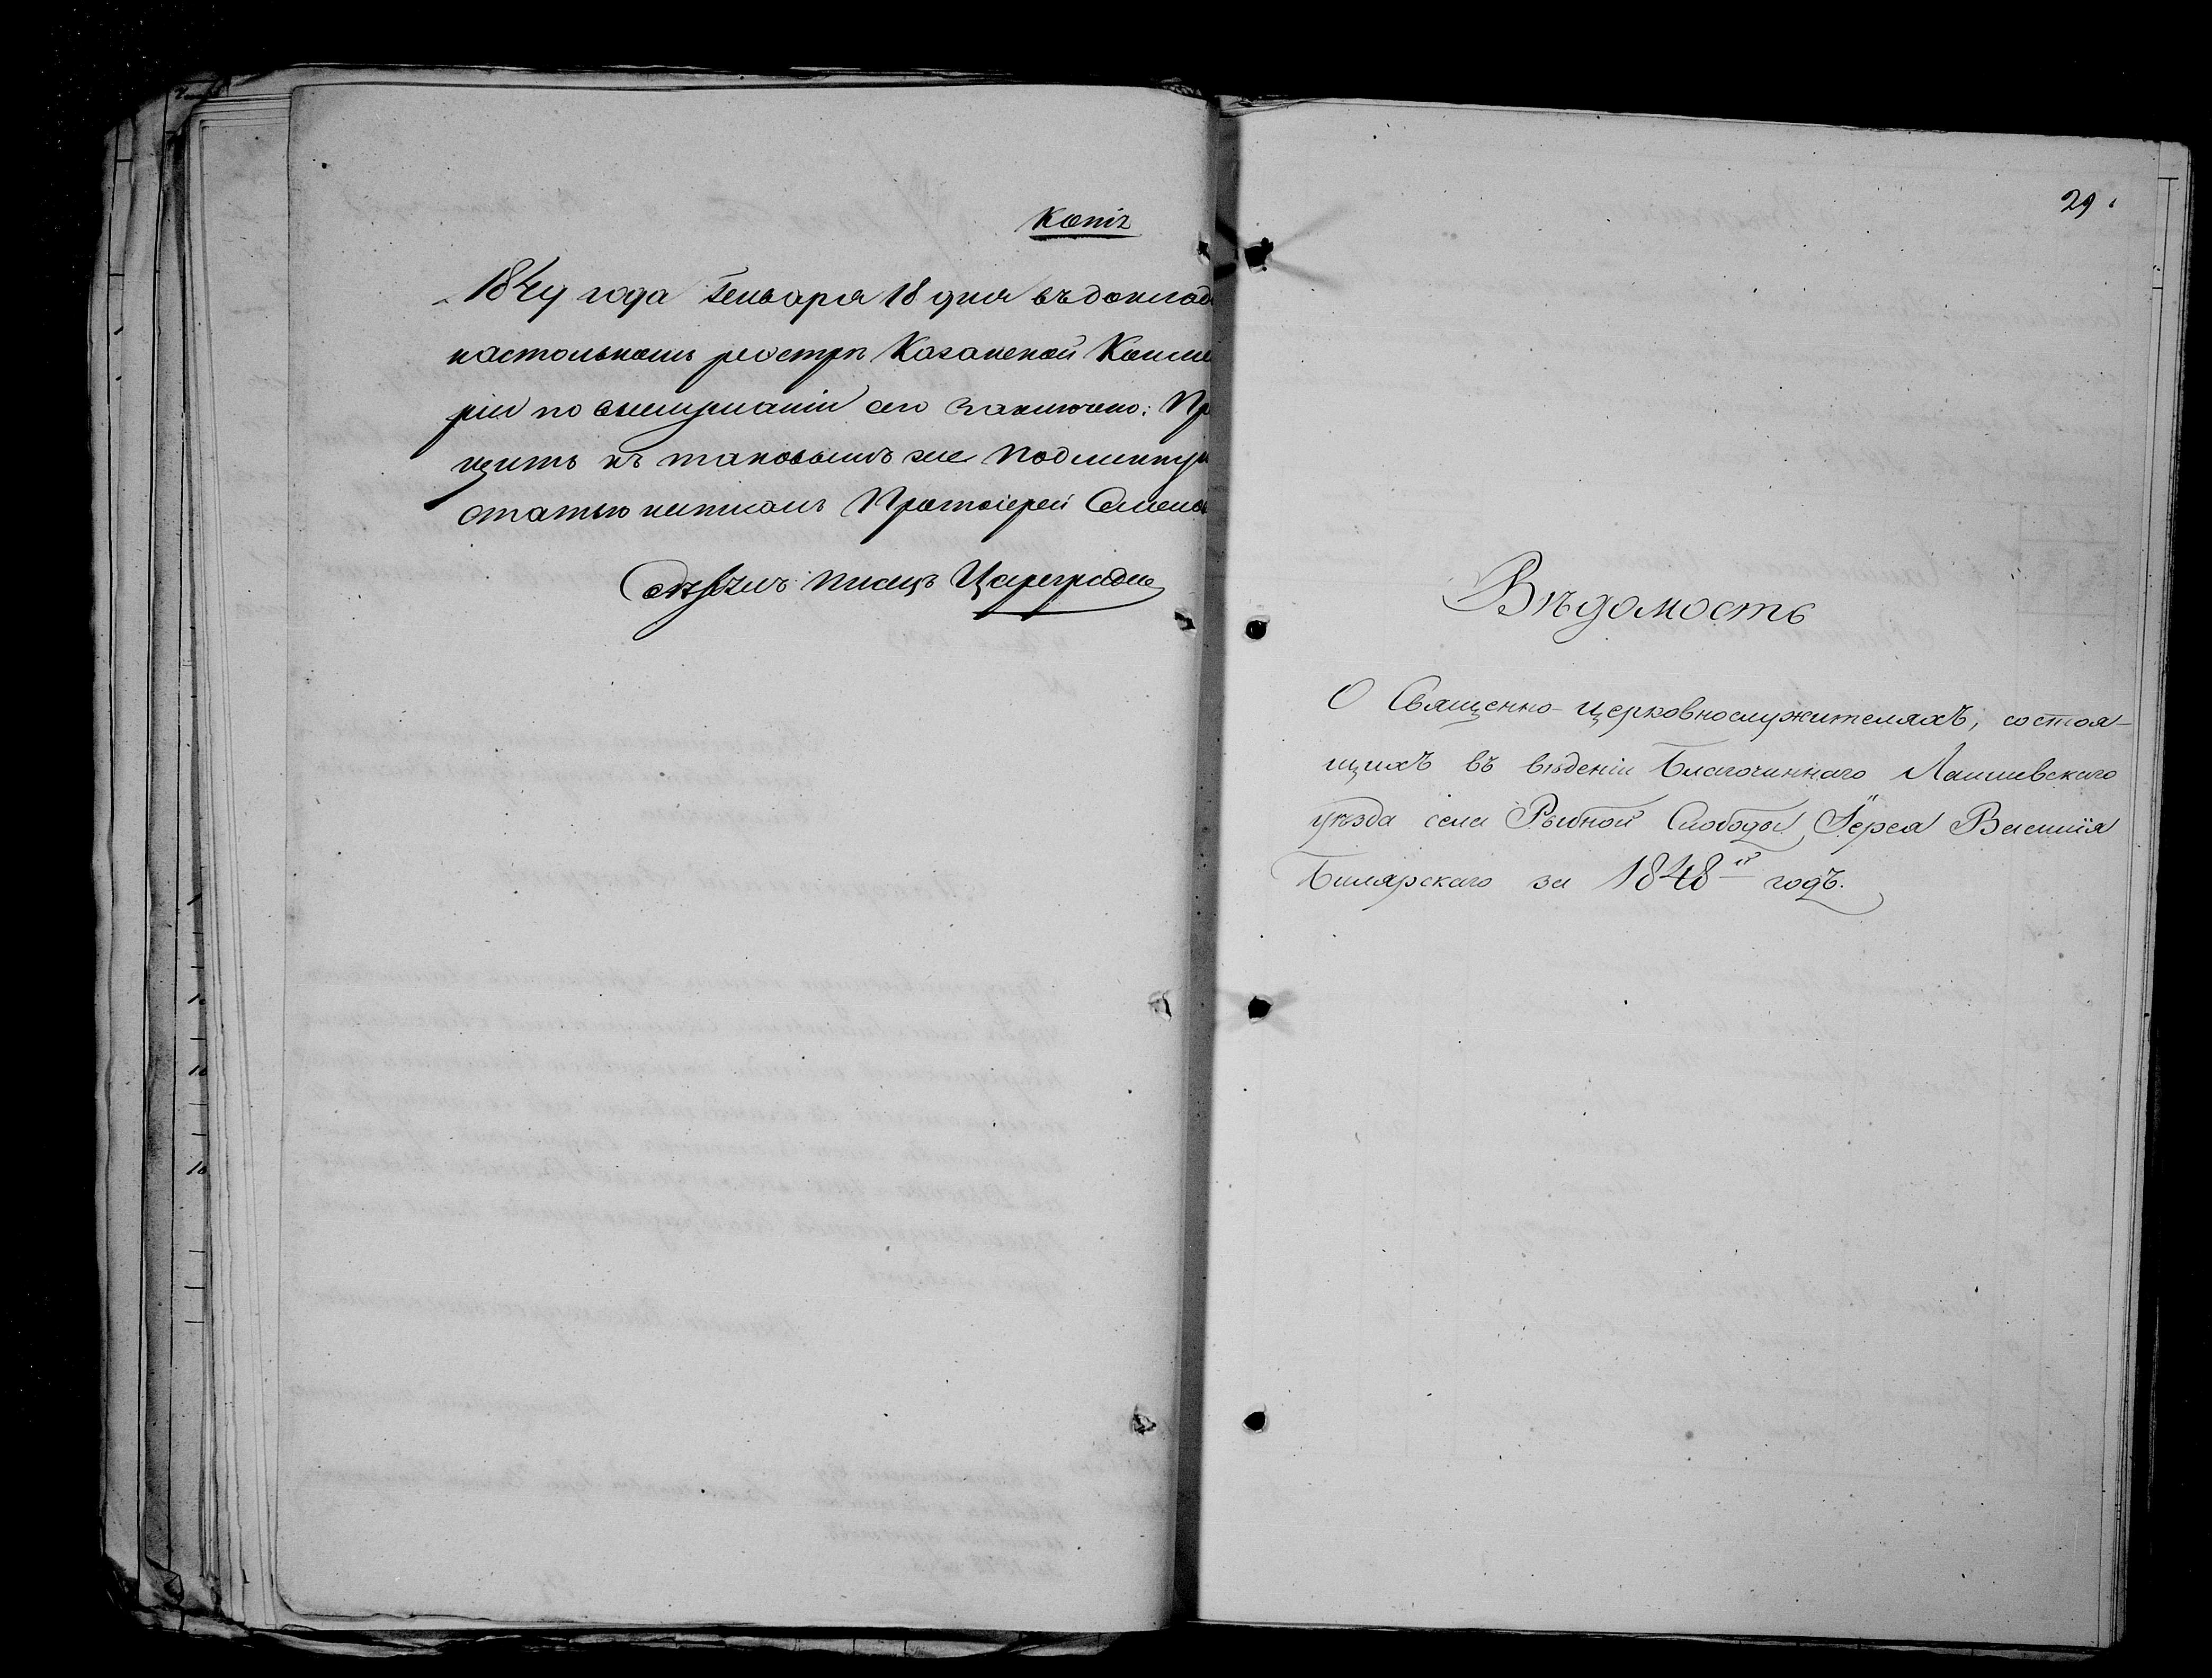 Копія
1849 года Генваря 18 дня въ доклад
настольномъ реэстрѣ Казанской Консис
ріи по выслушаніи его заключено: Пр
щить къ таковымъ же Подлинну
статью читалъ Протоіерей
Свѣрилъ писецъ Цареградс
29
Вѣдомость
О Священно-церковнослужителяхъ, состоя-
щихъ въ вѣденіи Благочиннаго Лаишевскаго
уѣзда села Рыбной Слободы Іерея Василія
Билярскаго за 1848й годъ.